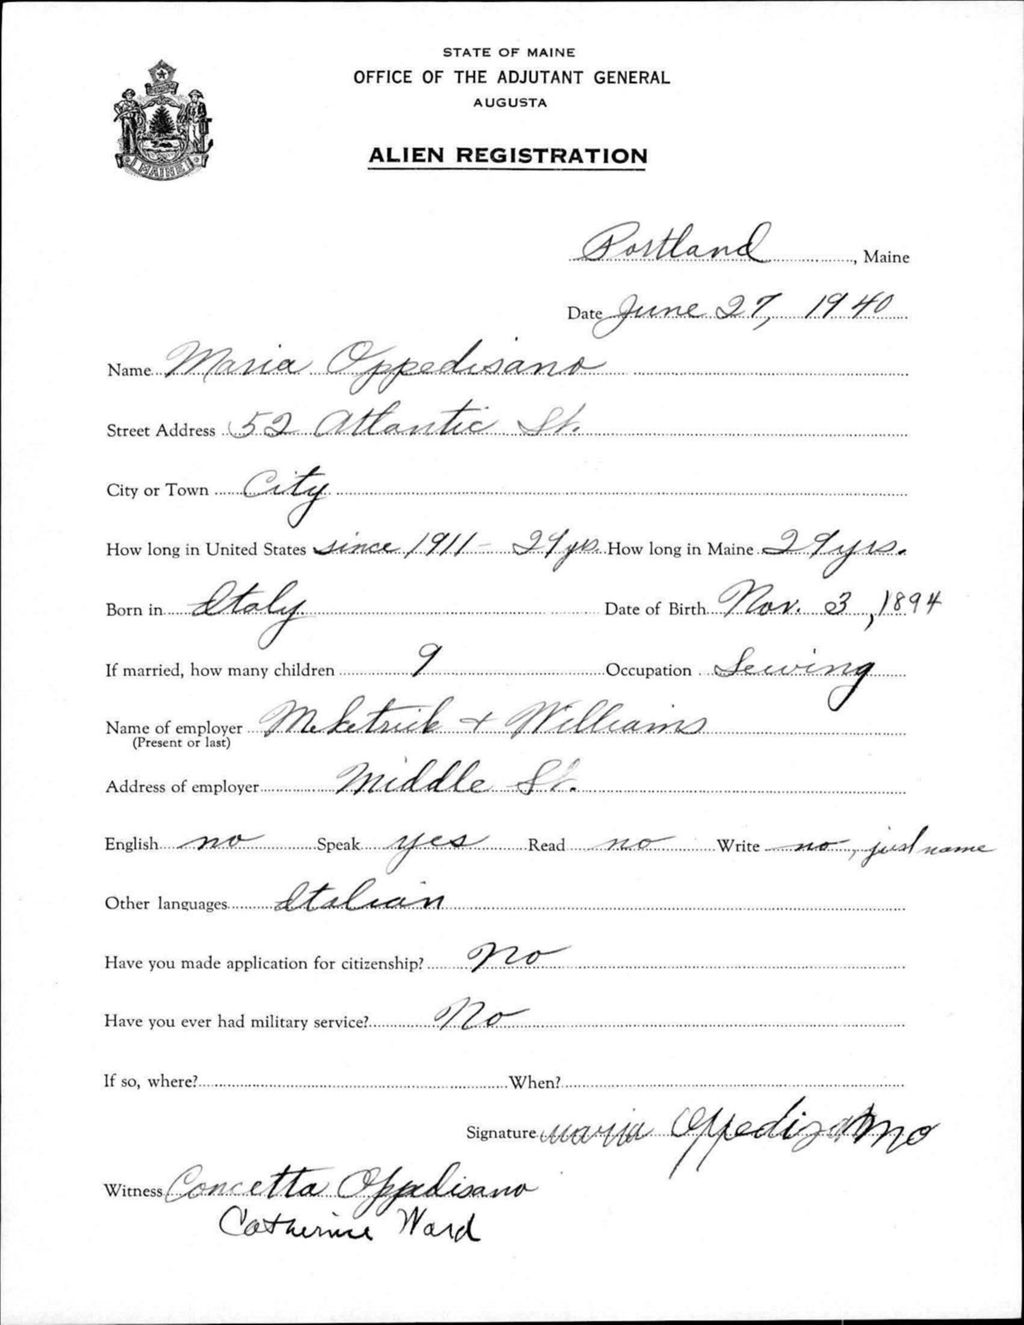 STATE OF MAINE
OFFICE OF THE ADJUTANT GENERAL
AUGUSTA
MAINE
ALIEN REGISTRATION
Portland, Maine
Date June 27, 1940
Name Maria Oppedisano
Street Address 52 Atlantic St.
City or Town City
How long in United States since 1911 - 29 yrs. How long in Maine 29 yrs.
Born in Italy Date of Birth Nov. 3, 1894
If married, how many children 9 Occupation Sewing
Name of employer McKetrick + Williams
(Present or last)
Address of employer Middle St.
English no Speak yes Read no Write no, just name
Other languages Italian
Have you made application for citizenship? No
Have you ever had military service? No
If so, where? When?
Signature maria Oppedizamo
Witness Concetta Oppedisano
Catherine Ward